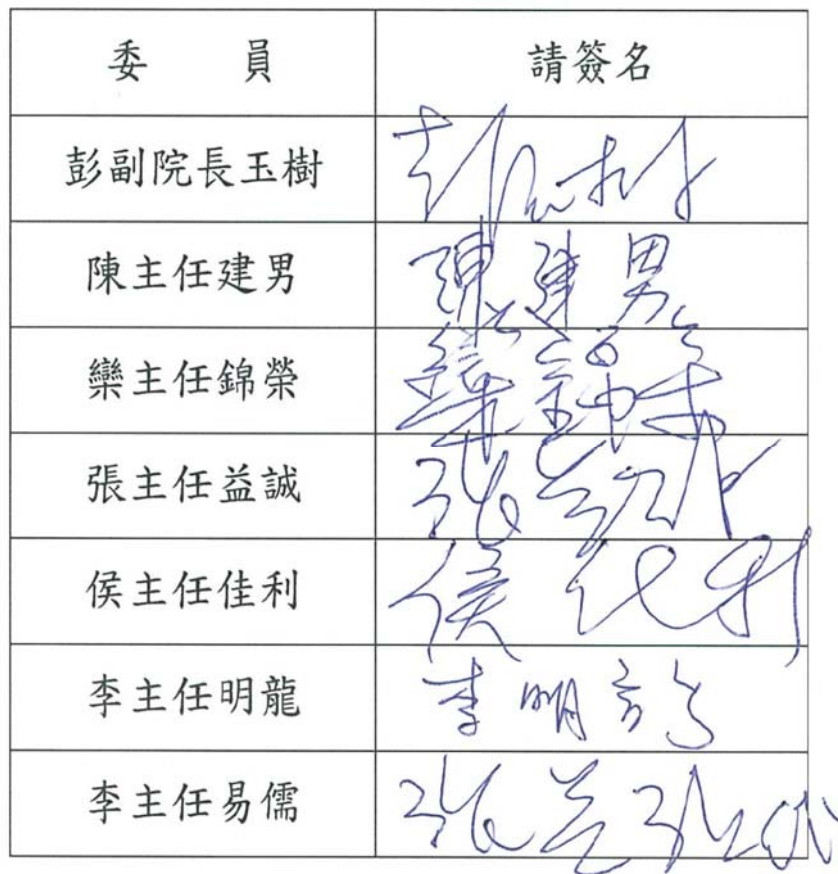 委員 請簽名
彭副院長玉樹 彭玉樹
陳主任建男 陳建男
欒主任錦榮 欒錦榮
張主任益誠 張益誠
侯主任佳利 侯佳利
李主任明龍 李明龍
李主任易儒